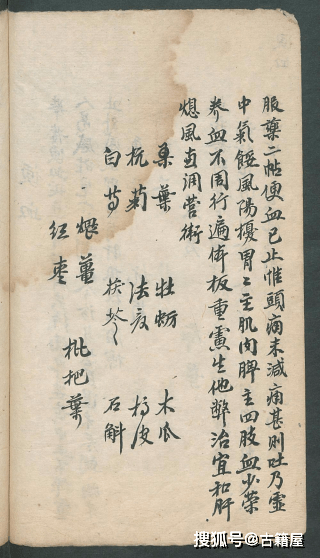 服藥二帖便血已止惟頭痛未減痛甚則吐乃虛
中氣餒風陽擾胃〻主肌肉脾主四肢血少榮
养血不周行遍体板重慮生他弊治宜和肝
熄風潤營術
桑葉 牡蛎 木瓜
杭菊 法夏 橘皮
白芍 茯苓 石斛
煨薑
红枣
枇杷葉
搜狐号@古籍屋